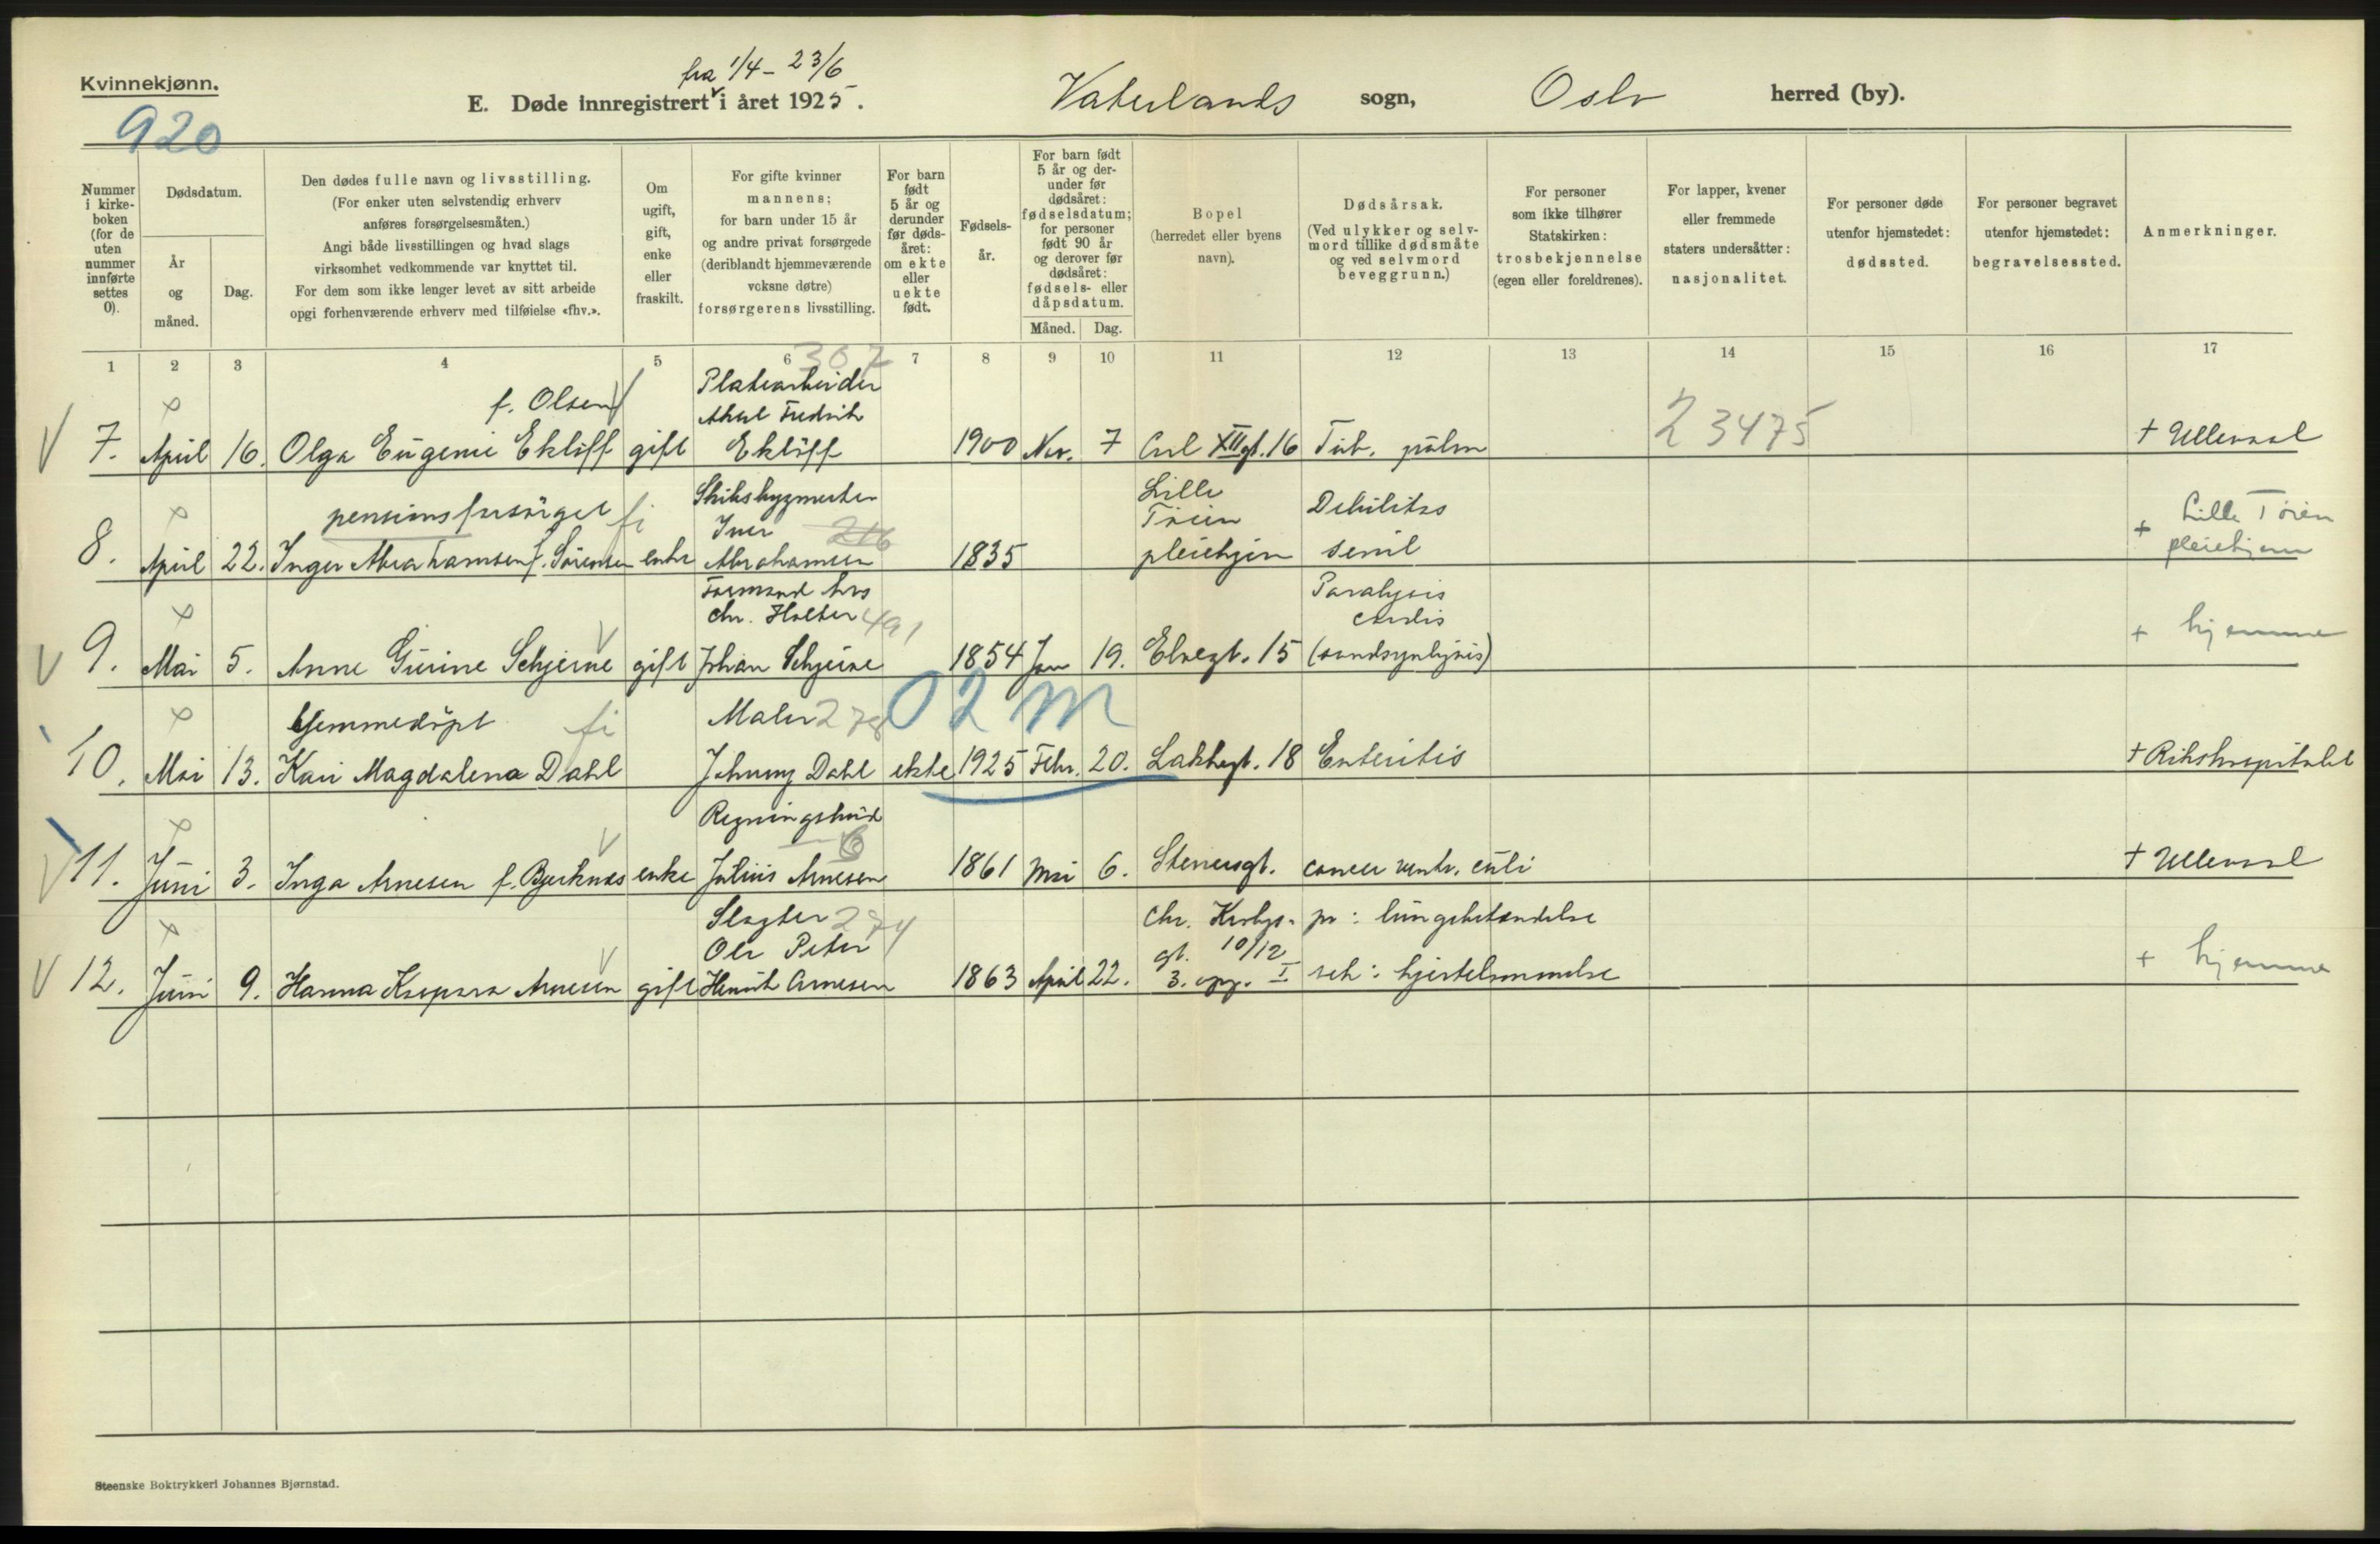 Kvinnekjønn.
920
fra 1/4 - 23/6
E. Døde innregistrert i året 1925.
Vaterlands sogn, Oslo herred (by).
Nummer i kirke- boken (for de uten nummer innførte settes 0).
Dødsdatum.
År og måned.
Dag.
Den dødes fulle navn og livsstilling.
(For enker uten selvstendig erhverv
anføres forsørgelsesmåten.)
Angi både livsstillingen og hvad slags
virksomhet vedkommende var knyttet til.
For dem som ikke lenger levet av sitt arbeide
opgi forhenværende erhverv med tilføielse «fhv.».
Om ugift, gift, enke eller fraskilt.
For gifte kvinner
mannens;
for barn under 15 år
og andre privat forsørgede
(deriblandt hjemmeværende
voksne døtre)
forsørgerens livsstilling.
For barn født 5 år og derunder før døds- året: om ekte eller uekte født.
Fødsels- år.
For barn født 5 år og der- under før dødsåret: fødselsdatum; for personer født 90 år og derover før dødsåret: fødsels- eller dåpsdatum.
Måned. Dag.
Bopel
(herredet eller byens
navn).
Dødsårsak.
(Ved ulykker og selv-
mord tillike dødsmåte
og ved selvmord
beveggrunn.)
For personer
som ikke tilhører
Statskirken:
trosbekjennelse
(egen eller foreldrenes).
For lapper, kvener
eller fremmede
staters undersåtter:
nasjonalitet.
For personer døde
utenfor hjemstedet:
dødssted.
For personer begravet
utenfor hjemstedet:
begravelsessted.
Anmerkninger.
1 2 3 4 5 6 7 8 9 10 11 12 13 14 15 16 17
307
f. Olsen Platearbeider
Axel Fredrik
7. April 16. Olga Eugenie Eklöff gift Eklöff 1900 Nov. 7 Carl XII gt. 16 Tub. pulm 23475 + Ullevaal
pensionsforsörget fi Skibsbygmester Lille Debilitas Lille Töien
Iver 216 Töien + pleiehjem
8. April 22. Inger Abrahamsen f. Sörensen enke Abrahamsen 1835 pleiehjem senil
Formand hos Paralysis
Chr. Holter 491 cordis
9. Mai 5. Anne Gurine Schjerne gift Johan Schjerne 1854 Jan 19. Elvegt. 15 (sandsynligvis) + hjemme
hjemmedöpt fi Maler 278 02 m
10. Mai 13. Kari Magdalena Dahl Johnny Dahl ekte 1925 Febr. 20. Lakkegt. 18 Enteritis + Rikshospitalet
Regningsbud
6
11. Juni 3. Inga Arnesen f. Bjerknes enke Julius Arnesen 1861 Mai 6. Stenersgt. cancer ventr. culi + Ullevaal
Slagter 274 Chr. Krohgs- pr: lungebetændelse
Ole Peter gt. 10/12
12. Juni 9. Hanna Kaspara Arnesen gift Henrik Arnesen 1863 April 22. 3. opg. I sek: hjertelammelse + hjemme
Steenske Boktrykkeri Johannes Bjørnstad.